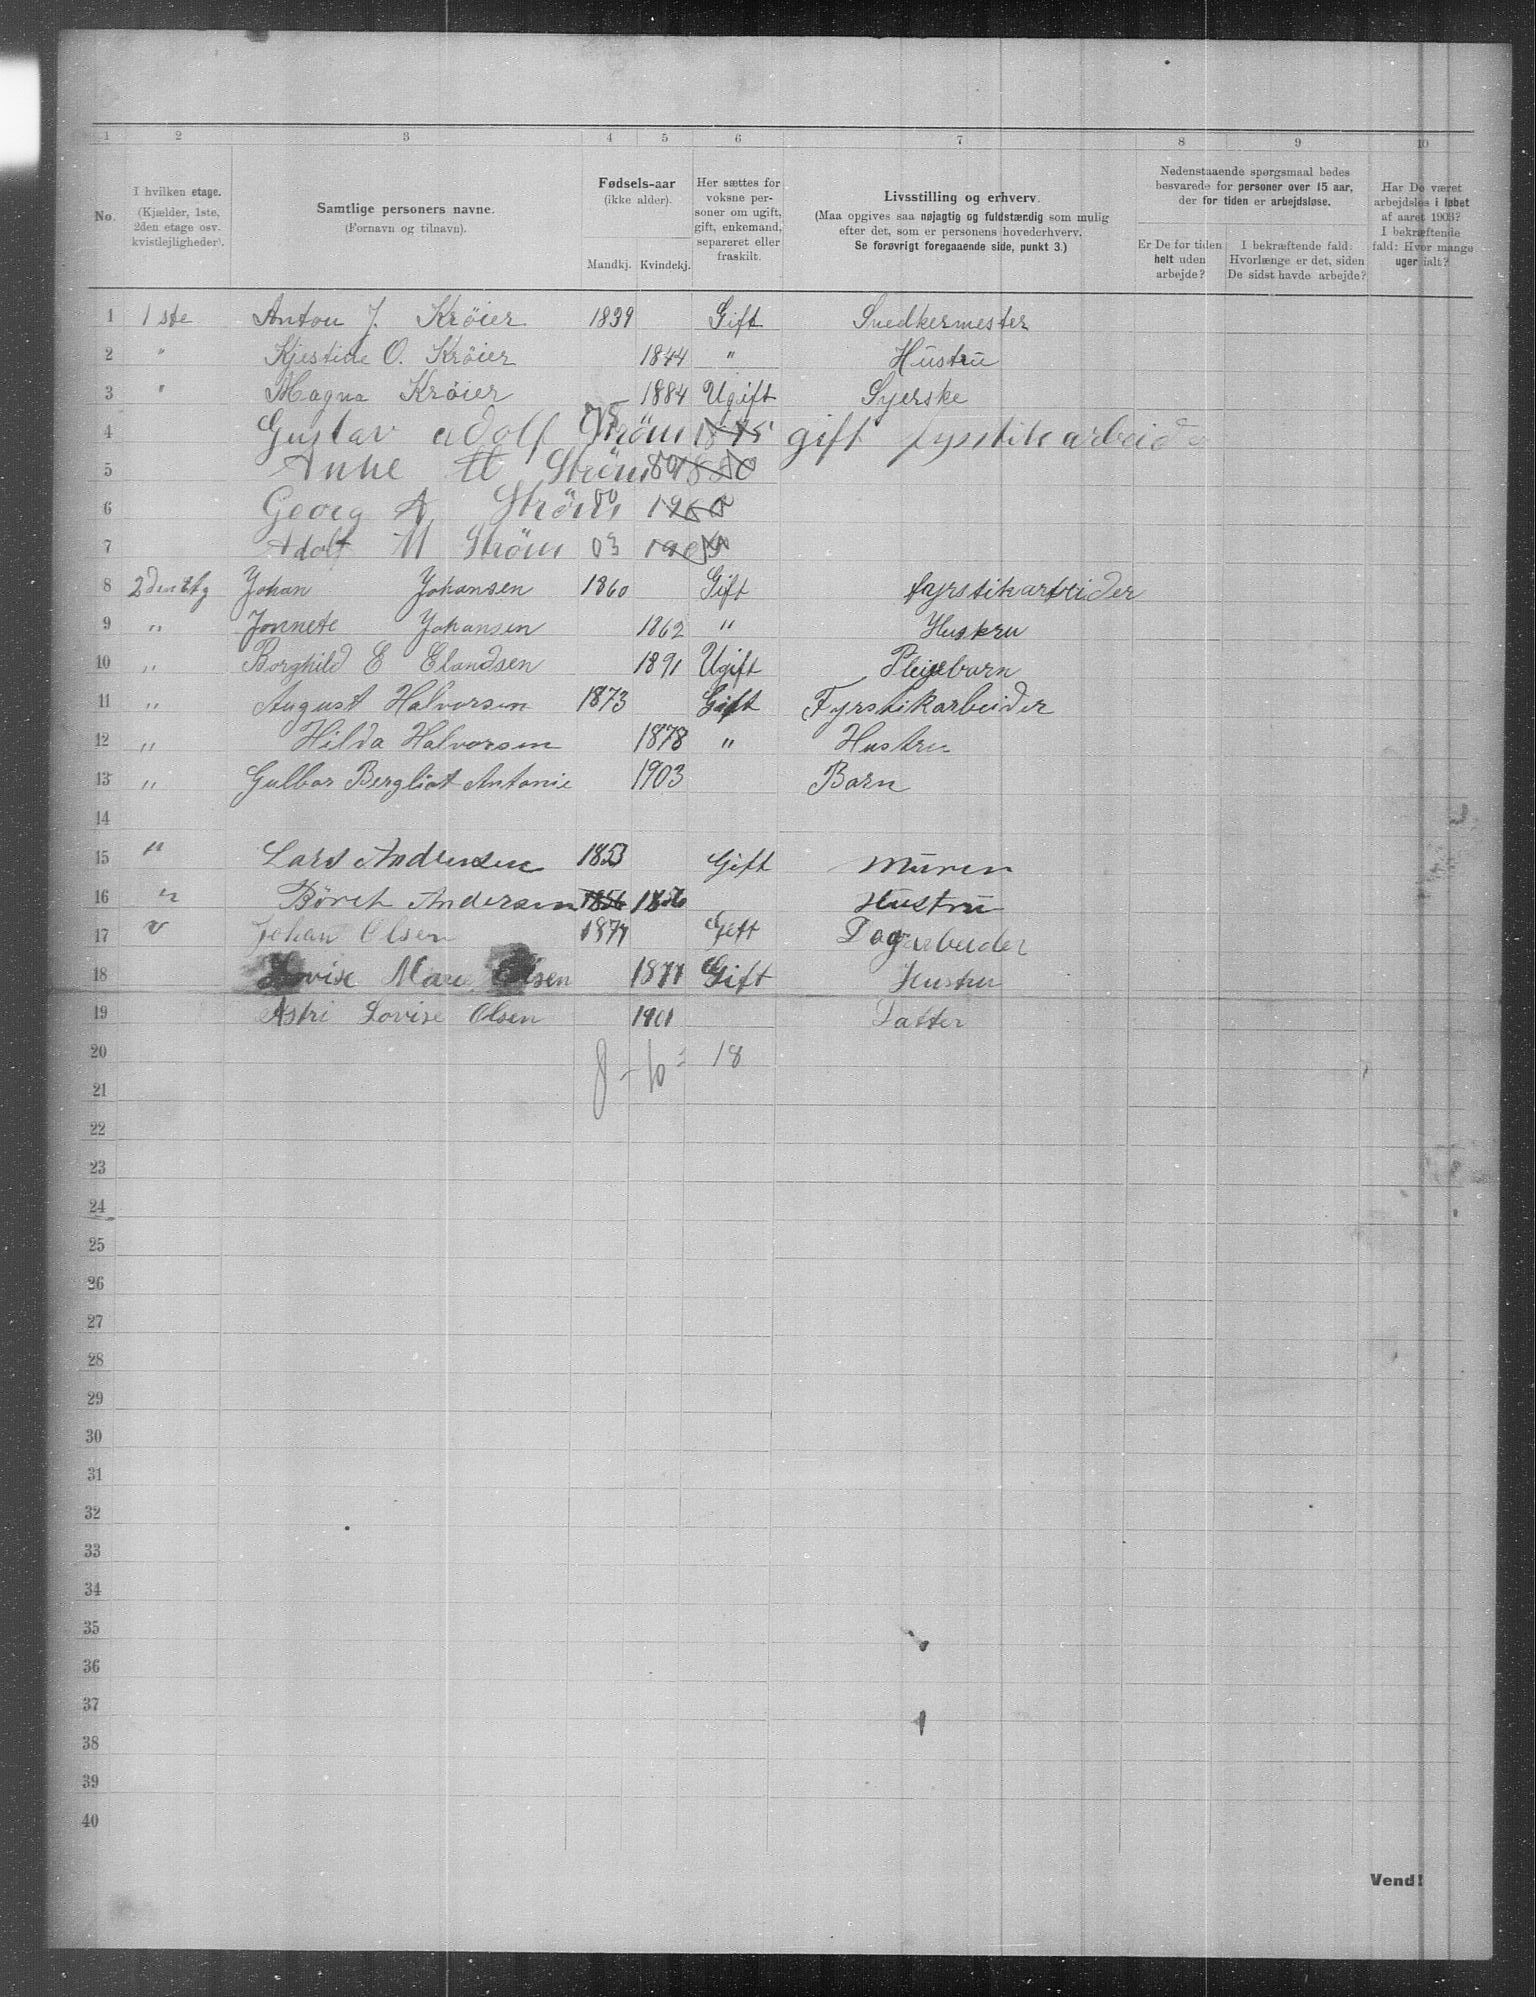 1 2 3 4 5 6 7 8 9 10
No.
I hvilken etage.
(Kjælder, 1ste,
2den etage osv.
kvistlejligheder).
Samtlige personers navne.
(Fornavn og tilnavn).
Fødsels-aar
(ikke alder).
Mandkj. Kvindekj.
Her sættes for
voksne per-
soner om ugift,
gift, enkemand,
separeret eller
fraskilt.
Livsstilling og erhverv.
(Maa opgives saa nøjagtig og fuldstændig som mulig
efter det, som er personens hovederhverv.
Se forøvrigt foregaaende side, punkt 3.)
Nedenstaaende spørgsmaal bedes
besvarede for personer over 15 aar,
der for tiden er arbejdsløse.
Er De for tiden
helt uden
arbejde?
I bekræftende fald:
Hvorlænge er det, siden
De sidst havde arbejde?
Har De været
arbejdsløs i løbet
af aaret 1903?
I bekræftende
fald: Hvor mange
uger ialt?
1 1ste Anton J. Krøier 1839 Gift Snedkermester
2 " Kjestine O. Krøier 1844 " Hustru
3 " Magna Krøier 1884 Ugift Syerske
4 Gustav Adolf Strøm 75 1875 gift fysstikarbeider
5 Anne M Strøm 80 1880
6 Georg A Strøm 00 1900
7 Adolf M Strøm 03 1903
8 2den etg Johan Johansen 1860 Gift fyrstikarbeider
9 " Jonnete Johansen 1862 " Hustru
10 " Borghild E Elandsen 1891 Ugift Pleiebarn
11 " August Halvorsen 1873 Gift Fyrstikarbeider
12 " Hilda Halvorsen 1878 " Hustru
13 " Gulbor Bergliot Antonie 1903 Barn
14
15 " Lars Andersen 1853 Gift Murer
16 " Böret Andersen 1856 1856 Hustru
17 " Johan Olsen 1877 Gift Dagarbeider
18 Lovise Marie Olsen 1877 Gift Hustru
19 Astri Lovise Olsen 1901 Datter
20 8 - 10 = 18
21
22
23
24
25
26
27
28
29
30
31
32
33
34
35
36
37
38
39
40
Vend!